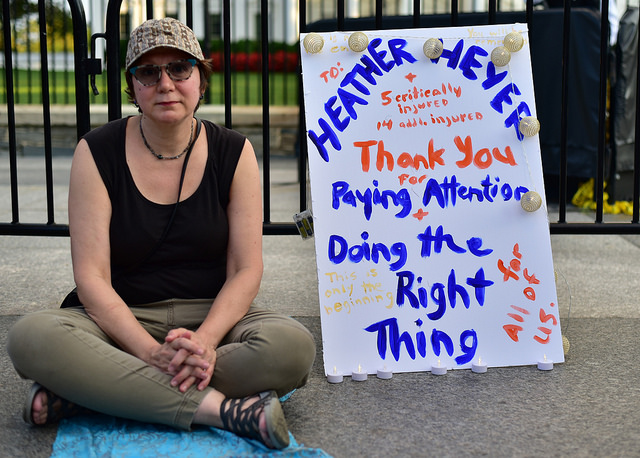 TO:
HEATHER HEYER
+
5 critically
injured
14 addl. injured
Thank You
For
Paying Attention
+
Doing the
Right
Thing
This is
only the
beginning
All for
of
us.